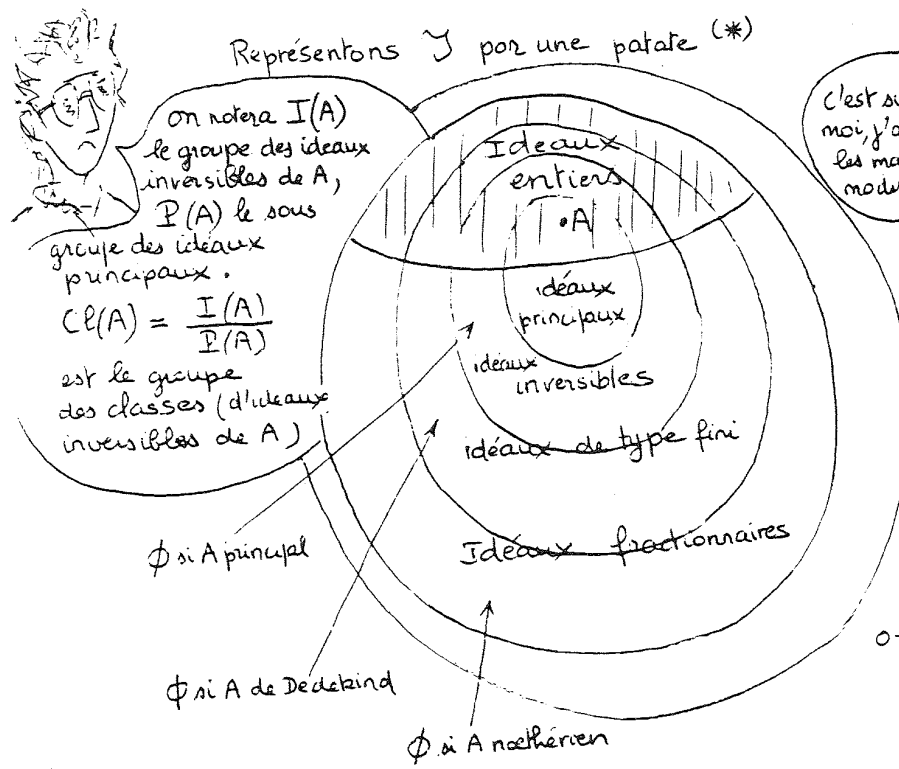 Représentons Y par une patate (*)
on notera I(A)
le groupe des ideaux
inversibles de A,
P(A) le sous
groupe des idéaux
principaux.
Cl(A) = I(A) / P(A)
est le groupe
des classes (d'ideaux
inversibles de A)
C'est su
moi, j'a
les ma
nodu
Ideaux
entiers
•A
idéaux
principaux
ideaux
inversibles
idéaux de type fini
Idéaux fractionnaires
Φ si A principal
Φ si A de Dedekind
Φ si A nœthérien